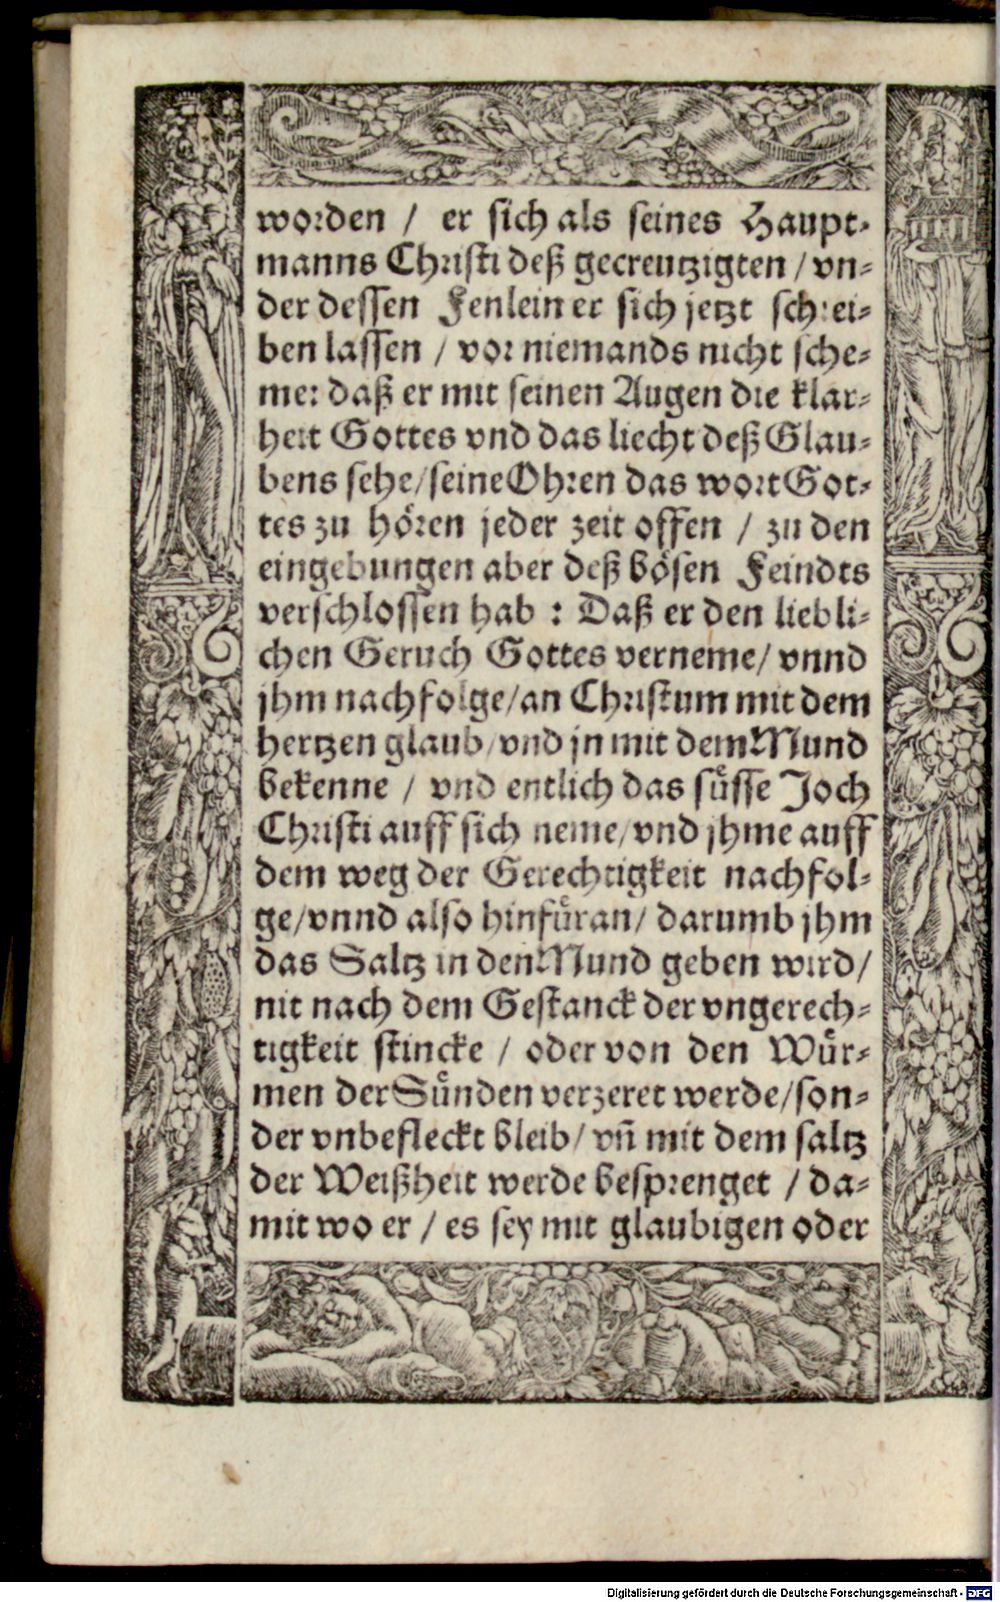 worden / er sich als seines Haupt-
manns Christi deß gecreutzigten / vn-
der dessen Fenlein er sich jetzt schrei-
ben lassen / vor niemands nicht sche-
me: daß er mit seinen Augen die klar-
heit Gottes vnd das liecht deß Glau-
bens sehe / seine Ohren das wort Got-
tes zu hören jeder zeit offen / zu den
eingebungen aber deß bösen Feindts
verschlossen hab : Daß er den liebli-
chen Geruch Gottes verneme / vnnd
jhm nachfolge / an Christum mit dem
hertzen glaub / vnd jn mit dem Mund
bekenne / vnd entlich das süsse Joch
Christi auff sich neme / vnd jhme auff
dem weg der Gerechtigkeit nachfol-
ge / vnnd also hinfüran / darumb jhm
das Saltz in den Mund geben wird /
nit nach dem Gestanck der vngerech-
tigkeit stincke / oder von den Wür-
men der Sünden verzeret werde / son-
der vnbefleckt bleib / vñ mit dem saltz
der Weißheit werde besprenget / da-
mit wo er / es sey mit glaubigen oder
Digitalisierung gefördert durch die Deutsche Forschungsgemeinschaft - DFG